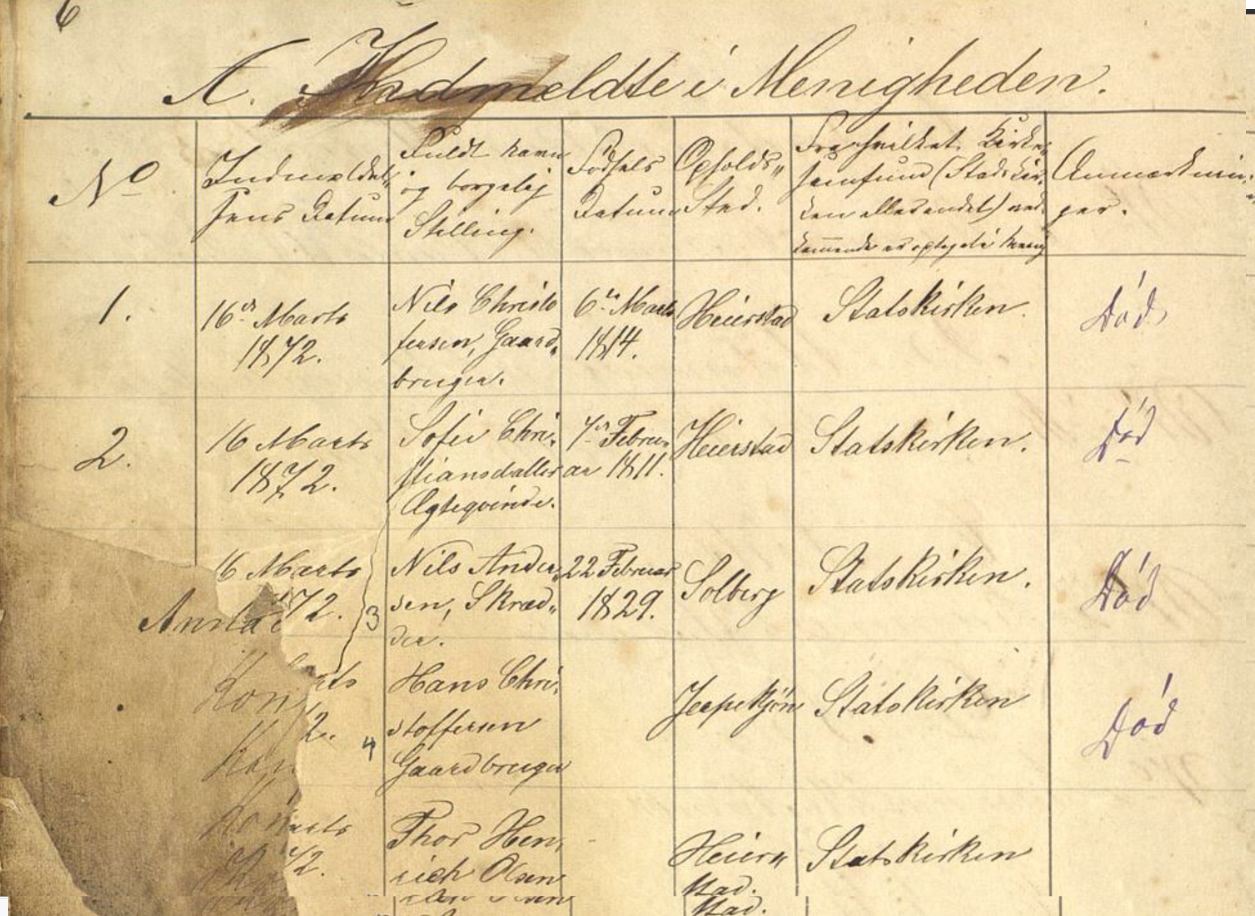 6
A. Indmeldte i Menigheden.
No
Indmeldel-
sens Datum
Fuldt Navn
og borgelig
Stilling.
Fødsels
Datum
Opholds„
Sted.
Fra hvilket Kirke-
samfund (Statskir-
ken eller andet) ved-
kommende er optaget i Menig
Anmærknin-
ger.
1.
16de Marts
1872.
Nils Christo
fersen, Gaard„
bruger.
6te Marts
1814.
Heierstad
Statskirken.
Død
2.
16 Marts
1872.
Sofie Chri-
stiansdatter
Ægteqvinde.
7de Febru-
ar 1811.
Heierstad
Statskirken.
Død
16 Marts
72.
3
Nils Ander-
sen, Skræd„
der.
22 Februar
1829.
Solberg
Statskirken.
Død
rts
2.
4
Hans Chri-
stoffersen
Gaardbruger
Jeppekjøn
Statskirken
Død
arts
72.
Thor Hen-
rich Olsen
Heier„
stad.
Statskirken
stad.